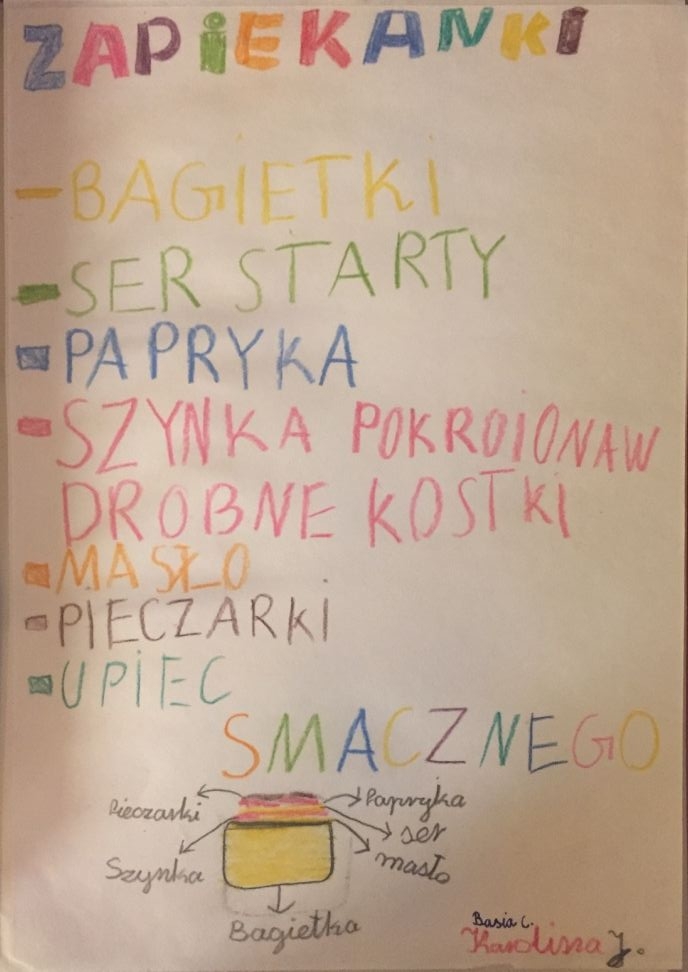 ZAPiEKANKi
- BAGiETKi
- SER STARTY
- PAPRYKA
- SZYNKA POKROiONA W
DROBNE KOSTKi
- MASŁO
- PiECZARKi
- UPiEC
SMACZNEGO
Pieczarki Papryka
ser
Szynka masło
Bagietka
Basia C.
Karolina J.